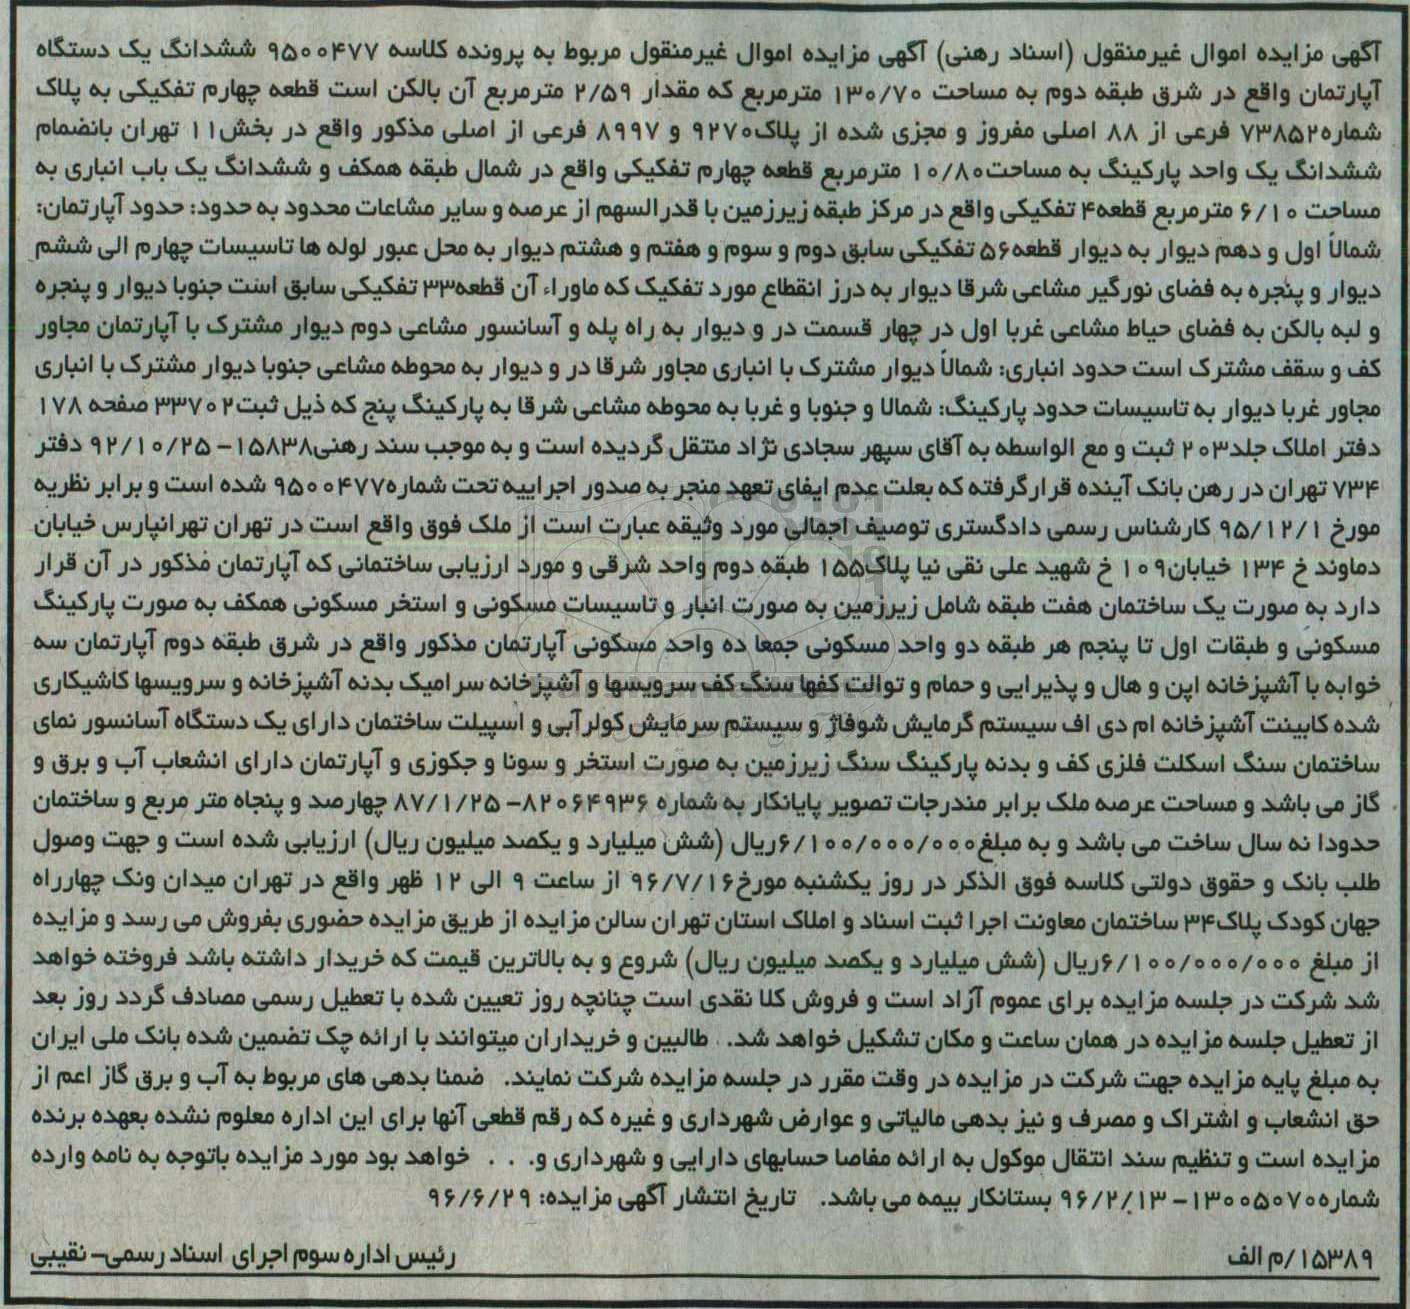 آگهی مزایده اموال غیرمنقول (اسناد رهنی) آگهی مزایده اموال غیرمنقول مربوط به پرونده کلاسه ۹۵۰۰۴۷۷ ششدانگ یک دستگاه
آپارتمان واقع در شرق طبقه دوم به مساحت ۱۳۰/۷۰ مترمربع که مقدار ۲/۵۹ مترمربع آن بالکن است قطعه چهارم تفکیکی به پلاک
شماره۷۳۸۵۲ فرعی از ۸۸ اصلی مفروز و مجزی شده از پلاک۹۲۷۰ و ۸۹۹۷ فرعی از اصلی مذکور واقع در بخش۱۱ تهران بانضمام
ششدانگ یک واحد پارکینگ به مساحت۱۰/۸۰ مترمربع قطعه چهارم تفکیکی واقع در شمال طبقه همکف و ششدانگ یک باب انباری به
مساحت ۶/۱۰ مترمربع قطعه۴ تفکیکی واقع در مرکز طبقه زیرزمین با قدرالسهم از عرصه و سایر مشاعات محدود به حدود: حدود آپارتمان:
شمالاً اول و دهم دیوار به دیوار قطعه۵۶ تفکیکی سابق دوم و سوم و هفتم و هشتم دیوار به محل عبور لوله ها تاسیسات چهارم الی ششم
دیوار و پنجره به فضای نورگیر مشاعی شرقا دیوار به درز انقطاع مورد تفکیک که ماوراء آن قطعه۳۳ تفکیکی سابق است جنوبا دیوار و پنجره
و لبه بالکن به فضای حیاط مشاعی غربا اول در چهار قسمت در و دیوار به راه پله و آسانسور مشاعی دوم دیوار مشترک با آپارتمان مجاور
کف و سقف مشترک است حدود انباری: شمالاً دیوار مشترک با انباری مجاور شرقا در و دیوار به محوطه مشاعی جنوبا دیوار مشترک با انباری
مجاور غربا دیوار به تاسیسات حدود پارکینگ: شمالا و جنوبا و غربا به محوطه مشاعی شرقا به پارکینگ پنج که ذیل ثبت۳۳۷۰۲ صفحه ۱۷۸
دفتر املاک جلد۲۰۳ ثبت و مع الواسطه به آقای سپهر سجادی نژاد منتقل گردیده است و به موجب سند رهنی۱۵۸۳۸- ۹۲/۱۰/۲۵ دفتر
۷۳۴ تهران در رهن بانک آینده قرارگرفته که بعلت عدم ایفای تعهد منجر به صدور اجراییه تحت شماره۹۵۰۰۴۷۷ شده است و برابر نظریه
مورخ ۹۵/۱۲/۱ کارشناس رسمی دادگستری توصیف اجمالی مورد وثیقه عبارت است از ملک فوق واقع است در تهران تهرانپارس خیابان
دماوند خ ۱۳۴ خیابان۱۰۹ خ شهید علی نقی نیا پلاک۱۵۵ طبقه دوم واحد شرقی و مورد ارزیابی ساختمانی که آپارتمان مذکور در آن قرار
دارد به صورت یک ساختمان هفت طبقه شامل زیرزمین به صورت انبار و تاسیسات مسکونی و استخر مسکونی همکف به صورت پارکینگ
مسکونی و طبقات اول تا پنجم هر طبقه دو واحد مسکونی جمعا ده واحد مسکونی آپارتمان مذکور واقع در شرق طبقه دوم آپارتمان سه
خوابه با آشپزخانه اپن و هال و پذیرایی و حمام و توالت کفها سنگ کف سرویسها و آشپزخانه سرامیک بدنه آشپزخانه و سرویسها کاشیکاری
شده کابینت آشپزخانه ام دی اف سیستم گرمایش شوفاژ و سیستم سرمایش کولرآبی و اسپیلت ساختمان دارای یک دستگاه آسانسور نمای
ساختمان سنگ اسکلت فلزی کف و بدنه پارکینگ سنگ زیرزمین به صورت استخر و سونا و جکوزی و آپارتمان دارای انشعاب آب و برق و
گاز می باشد و مساحت عرصه ملک برابر مندرجات تصویر پایانکار به شماره ۸۲۰۶۴۹۳۶- ۸۷/۱/۲۵ چهارصد و پنجاه متر مربع و ساختمان
حدودا نه سال ساخت می باشد و به مبلغ۶/۱۰۰/۰۰۰/۰۰۰ریال (شش میلیارد و یکصد میلیون ریال) ارزیابی شده است و جهت وصول
طلب بانک و حقوق دولتی کلاسه فوق الذکر در روز یکشنبه مورخ۹۶/۷/۱۶ از ساعت ۹ الی ۱۲ ظهر واقع در تهران میدان ونک چهارراه
جهان کودک پلاک۳۴ ساختمان معاونت اجرا ثبت اسناد و املاک استان تهران سالن مزایده از طریق مزایده حضوری بفروش می رسد و مزایده
از مبلغ ۶/۱۰۰/۰۰۰/۰۰۰ریال (شش میلیارد و یکصد میلیون ریال) شروع و به بالاترین قیمت که خریدار داشته باشد فروخته خواهد
شد شرکت در جلسه مزایده برای عموم آزاد است و فروش کلا نقدی است چنانچه روز تعیین شده با تعطیل رسمی مصادف گردد روز بعد
از تعطیل جلسه مزایده در همان ساعت و مکان تشکیل خواهد شد. طالبین و خریداران میتوانند با ارائه چک تضمین شده بانک ملی ایران
به مبلغ پایه مزایده جهت شرکت در مزایده در وقت مقرر در جلسه مزایده شرکت نمایند. ضمنا بدهی های مربوط به آب و برق گاز اعم از
حق انشعاب و اشتراک و مصرف و نیز بدهی مالیاتی و عوارض شهرداری و غیره که رقم قطعی آنها برای این اداره معلوم نشده بعهده برنده
مزایده است و تنظیم سند انتقال موکول به ارائه مفاصا حسابهای دارایی و شهرداری و. . . خواهد بود مورد مزایده باتوجه به نامه وارده
شماره۱۳۰۰۵۰۷۰- ۹۶/۲/۱۳ بستانکار بیمه می باشد. تاریخ انتشار آگهی مزایده: ۹۶/۶/۲۹
۱۵۳۸۹/م الف رئیس اداره سوم اجرای اسناد رسمی- نقیبی